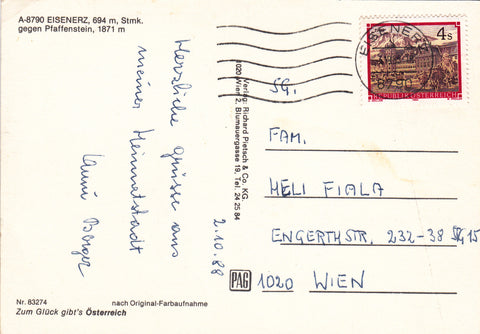 A-8790 EISENERZ, 694 m, Stmk.
gegen Pfaffenstein, 1871 m
Herzliche Grüsse aus
meiner Heimatstadt
Berger
2.10.88
Verlag: Richard Pietsch & Co. KG.
1020 Wien 2, Blumauergasse 19, Tel. 24 25 84
PAG
EISENERZ
8790
4s
REPUBLIK ÖSTERREICH
SG.
FAM.
HELI FIALA
ENGERTHSTR. 232-38 
1020 WIEN
Nr. 83274
nach Original-Farbaufnahme
Zum Glück gibt's Österreich